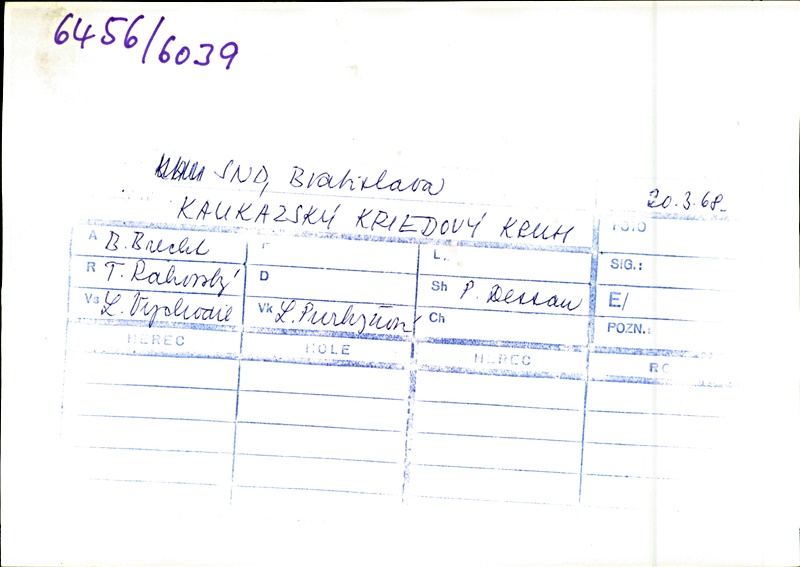 6456/6039
SND, Bratislava
20.3.68.
KAUKAZSKÝ KRIEDOVÝ KRUH
A B. Brecht
R T. Rakovský
D
Vs L. Vychodil
Vk L. Purkyňová
L.
Sh P. Dessau
Ch
FOTO
SIG.:
E/
POZN.:
HEREC
ROLE
HEREC